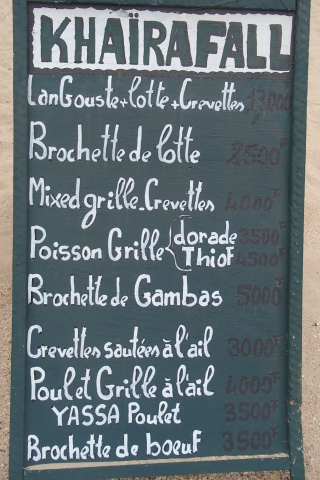 KHAÏRAFALL
LanGouste+lotte+Crevettes 12000
Brochette de lotte 2500F
Mixed grille-Crevettes 4000F
Poisson Grille dorade 3500F
Thiof 4500F
Brochette de Gambas 5000F
Crevettes sautées à l'ail 3000F
Poulet Grille à l'ail 4000F
YASSA Poulet 3500F
Brochette de boeuf 3500F